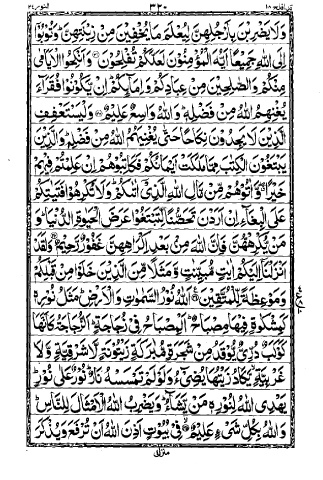 قد افلح ۱۸ ۳۲۰ النور ۲۴
وَلَا يَضْرِبْنَ بِاَرْجُلِهِنَّ لِيُعْلَمَ مَا يُخْفِيْنَ مِنْ زِيْنَتِهِنَّ ؕ وَتُوْبُوْٓا
اِلَى اللّٰهِ جَمِيْعًا اَيُّهَ الْمُؤْمِنُوْنَ لَعَلَّكُمْ تُفْلِحُوْنَ ۝ وَاَنْكِحُوا الْاَيَامٰى
مِنْكُمْ وَالصّٰلِحِيْنَ مِنْ عِبَادِكُمْ وَاِمَآئِكُمْ ؕ اِنْ يَّكُوْنُوْا فُقَرَآءَ
يُغْنِهِمُ اللّٰهُ مِنْ فَضْلِهٖ ؕ وَاللّٰهُ وَاسِعٌ عَلِيْمٌ ۝ وَلْيَسْتَعْفِفِ
الَّذِيْنَ لَا يَجِدُوْنَ نِكَاحًا حَتّٰى يُغْنِيَهُمُ اللّٰهُ مِنْ فَضْلِهٖ ؕ وَالَّذِيْنَ
يَبْتَغُوْنَ الْكِتٰبَ مِمَّا مَلَكَتْ اَيْمَانُكُمْ فَكَاتِبُوْهُمْ اِنْ عَلِمْتُمْ فِيْهِمْ
خَيْرًا ۖ وَّاٰتُوْهُمْ مِّنْ مَّالِ اللّٰهِ الَّذِيْٓ اٰتٰىكُمْ ؕ وَلَا تُكْرِهُوْا فَتَيٰتِكُمْ
عَلَى الْبِغَآءِ اِنْ اَرَدْنَ تَحَصُّنًا لِّتَبْتَغُوْا عَرَضَ الْحَيٰوةِ الدُّنْيَا ؕ وَ
مَنْ يُّكْرِهْهُّنَّ فَاِنَّ اللّٰهَ مِنْ بَعْدِ اِكْرَاهِهِنَّ غَفُوْرٌ رَّحِيْمٌ ۝ وَلَقَدْ
اَنْزَلْنَآ اِلَيْكُمْ اٰيٰتٍ مُّبَيِّنٰتٍ وَّمَثَلًا مِّنَ الَّذِيْنَ خَلَوْا مِنْ قَبْلِكُمْ
وَمَوْعِظَةً لِّلْمُتَّقِيْنَ ۝ اَللّٰهُ نُوْرُ السَّمٰوٰتِ وَالْاَرْضِ ؕ مَثَلُ نُوْرِهٖ
كَمِشْكٰوةٍ فِيْهَا مِصْبَاحٌ ؕ اَلْمِصْبَاحُ فِيْ زُجَاجَةٍ ؕ اَلزُّجَاجَةُ كَاَنَّهَا
كَوْكَبٌ دُرِّيٌّ يُّوْقَدُ مِنْ شَجَرَةٍ مُّبٰرَكَةٍ زَيْتُوْنَةٍ لَّا شَرْقِيَّةٍ وَّلَا
غَرْبِيَّةٍ ۙ يَّكَادُ زَيْتُهَا يُضِيْٓءُ وَلَوْ لَمْ تَمْسَسْهُ نَارٌ ؕ نُوْرٌ عَلٰى نُوْرٍ ؕ
يَهْدِي اللّٰهُ لِنُوْرِهٖ مَنْ يَّشَآءُ ؕ وَيَضْرِبُ اللّٰهُ الْاَمْثَالَ لِلنَّاسِ ؕ
وَاللّٰهُ بِكُلِّ شَيْءٍ عَلِيْمٌ ۝ فِيْ بُيُوْتٍ اَذِنَ اللّٰهُ اَنْ تُرْفَعَ وَيُذْكَرَ
منزل۴